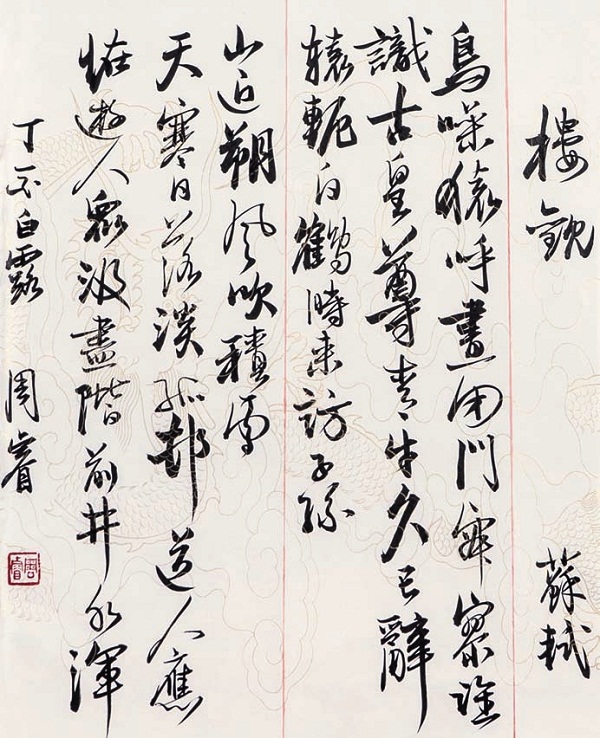 樓觀 蘇軾
鳥噪猿呼晝閉門寂寥誰
識古皇尊青牛久已辭
轅軛白鶴時来訪子孫
山近朔風吹積雪
天寒日落淡孤邨道人應
恠遊人衆汲盡階前井水渾
丁酉白露 周睿
周睿